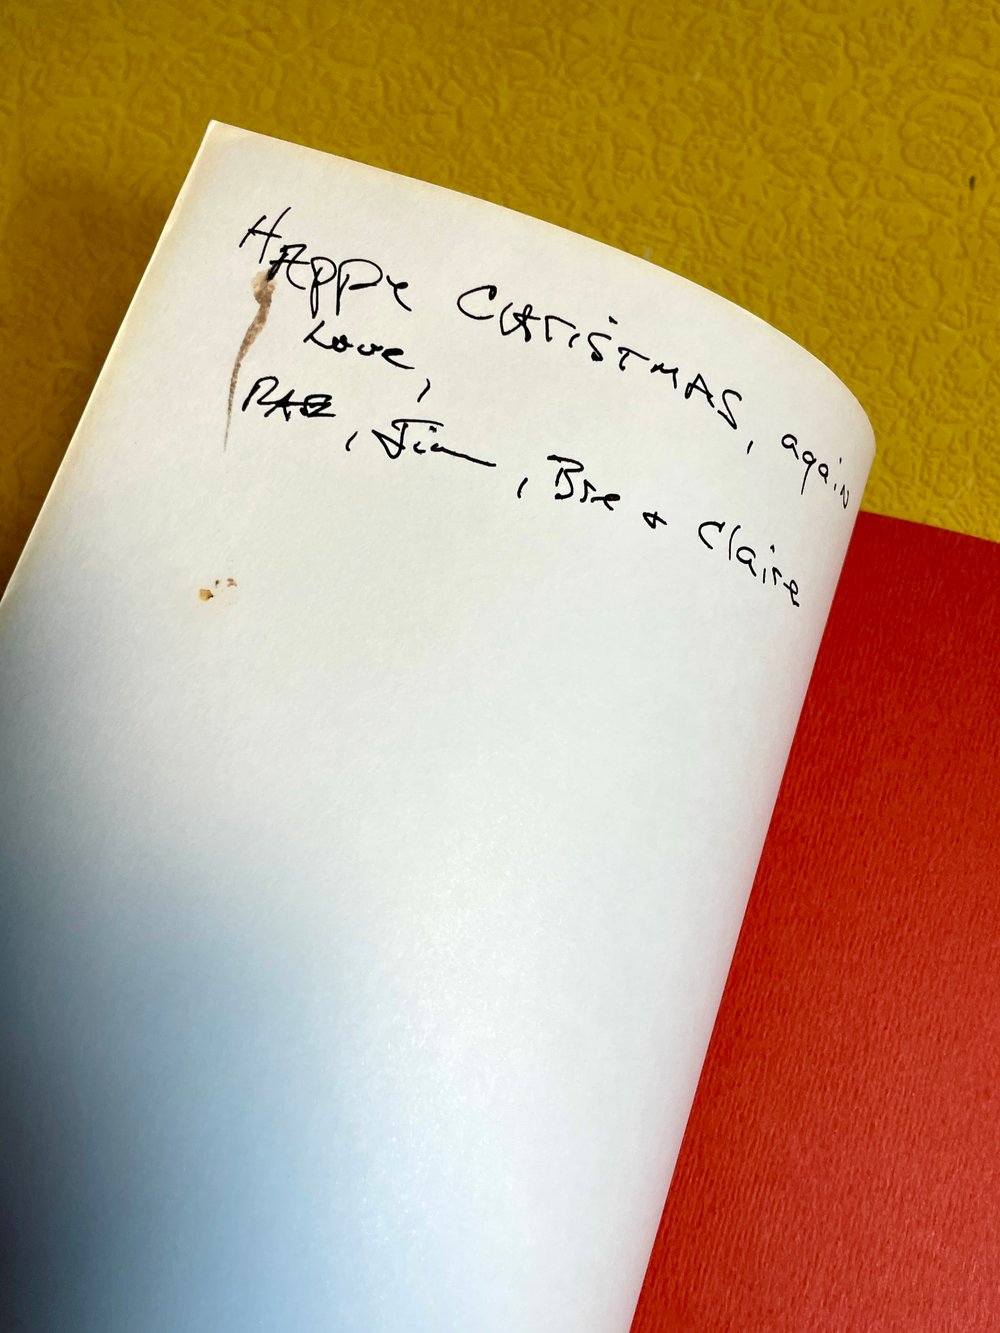 HAPPY CHRISTMAS, again
Love,
RAE, Jim, Bre + Claire